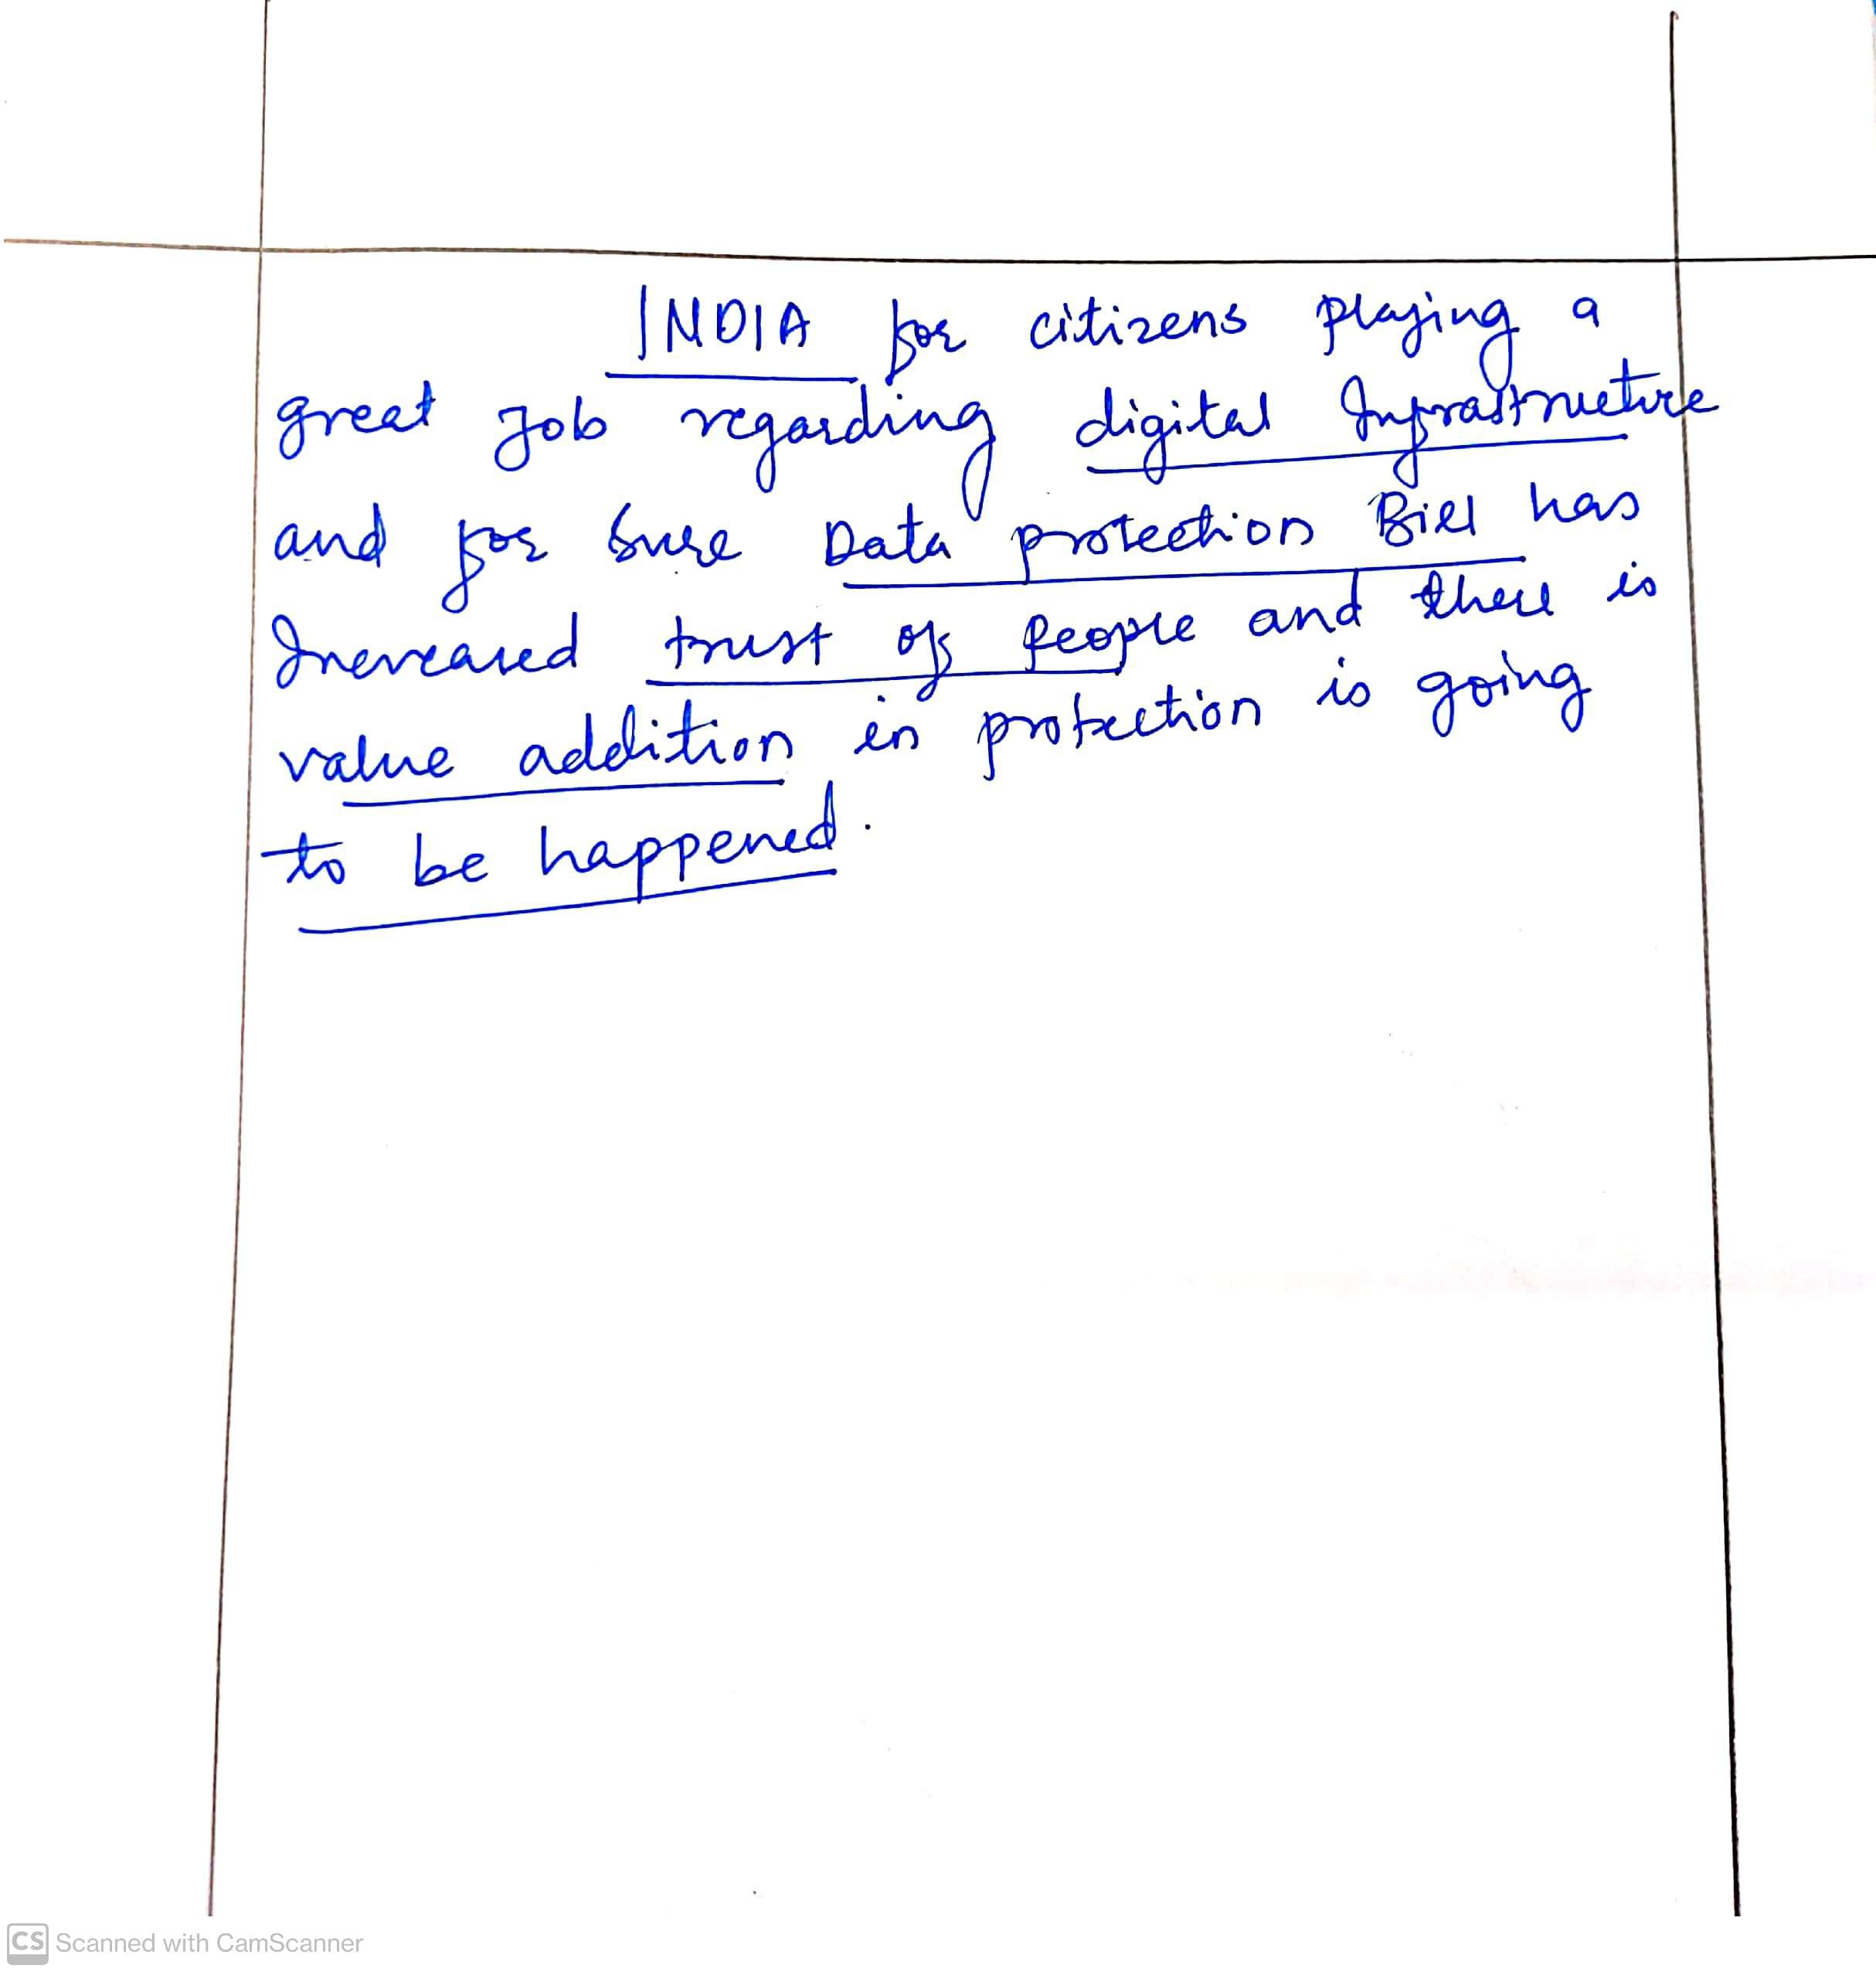 INDIA for citizens playing a
great Job regarding digital Infrastructure
and for sure Data protection Bill has
Increased trust of people and there is
value addition in protection is going
to be happened.
CS Scanned with CamScanner